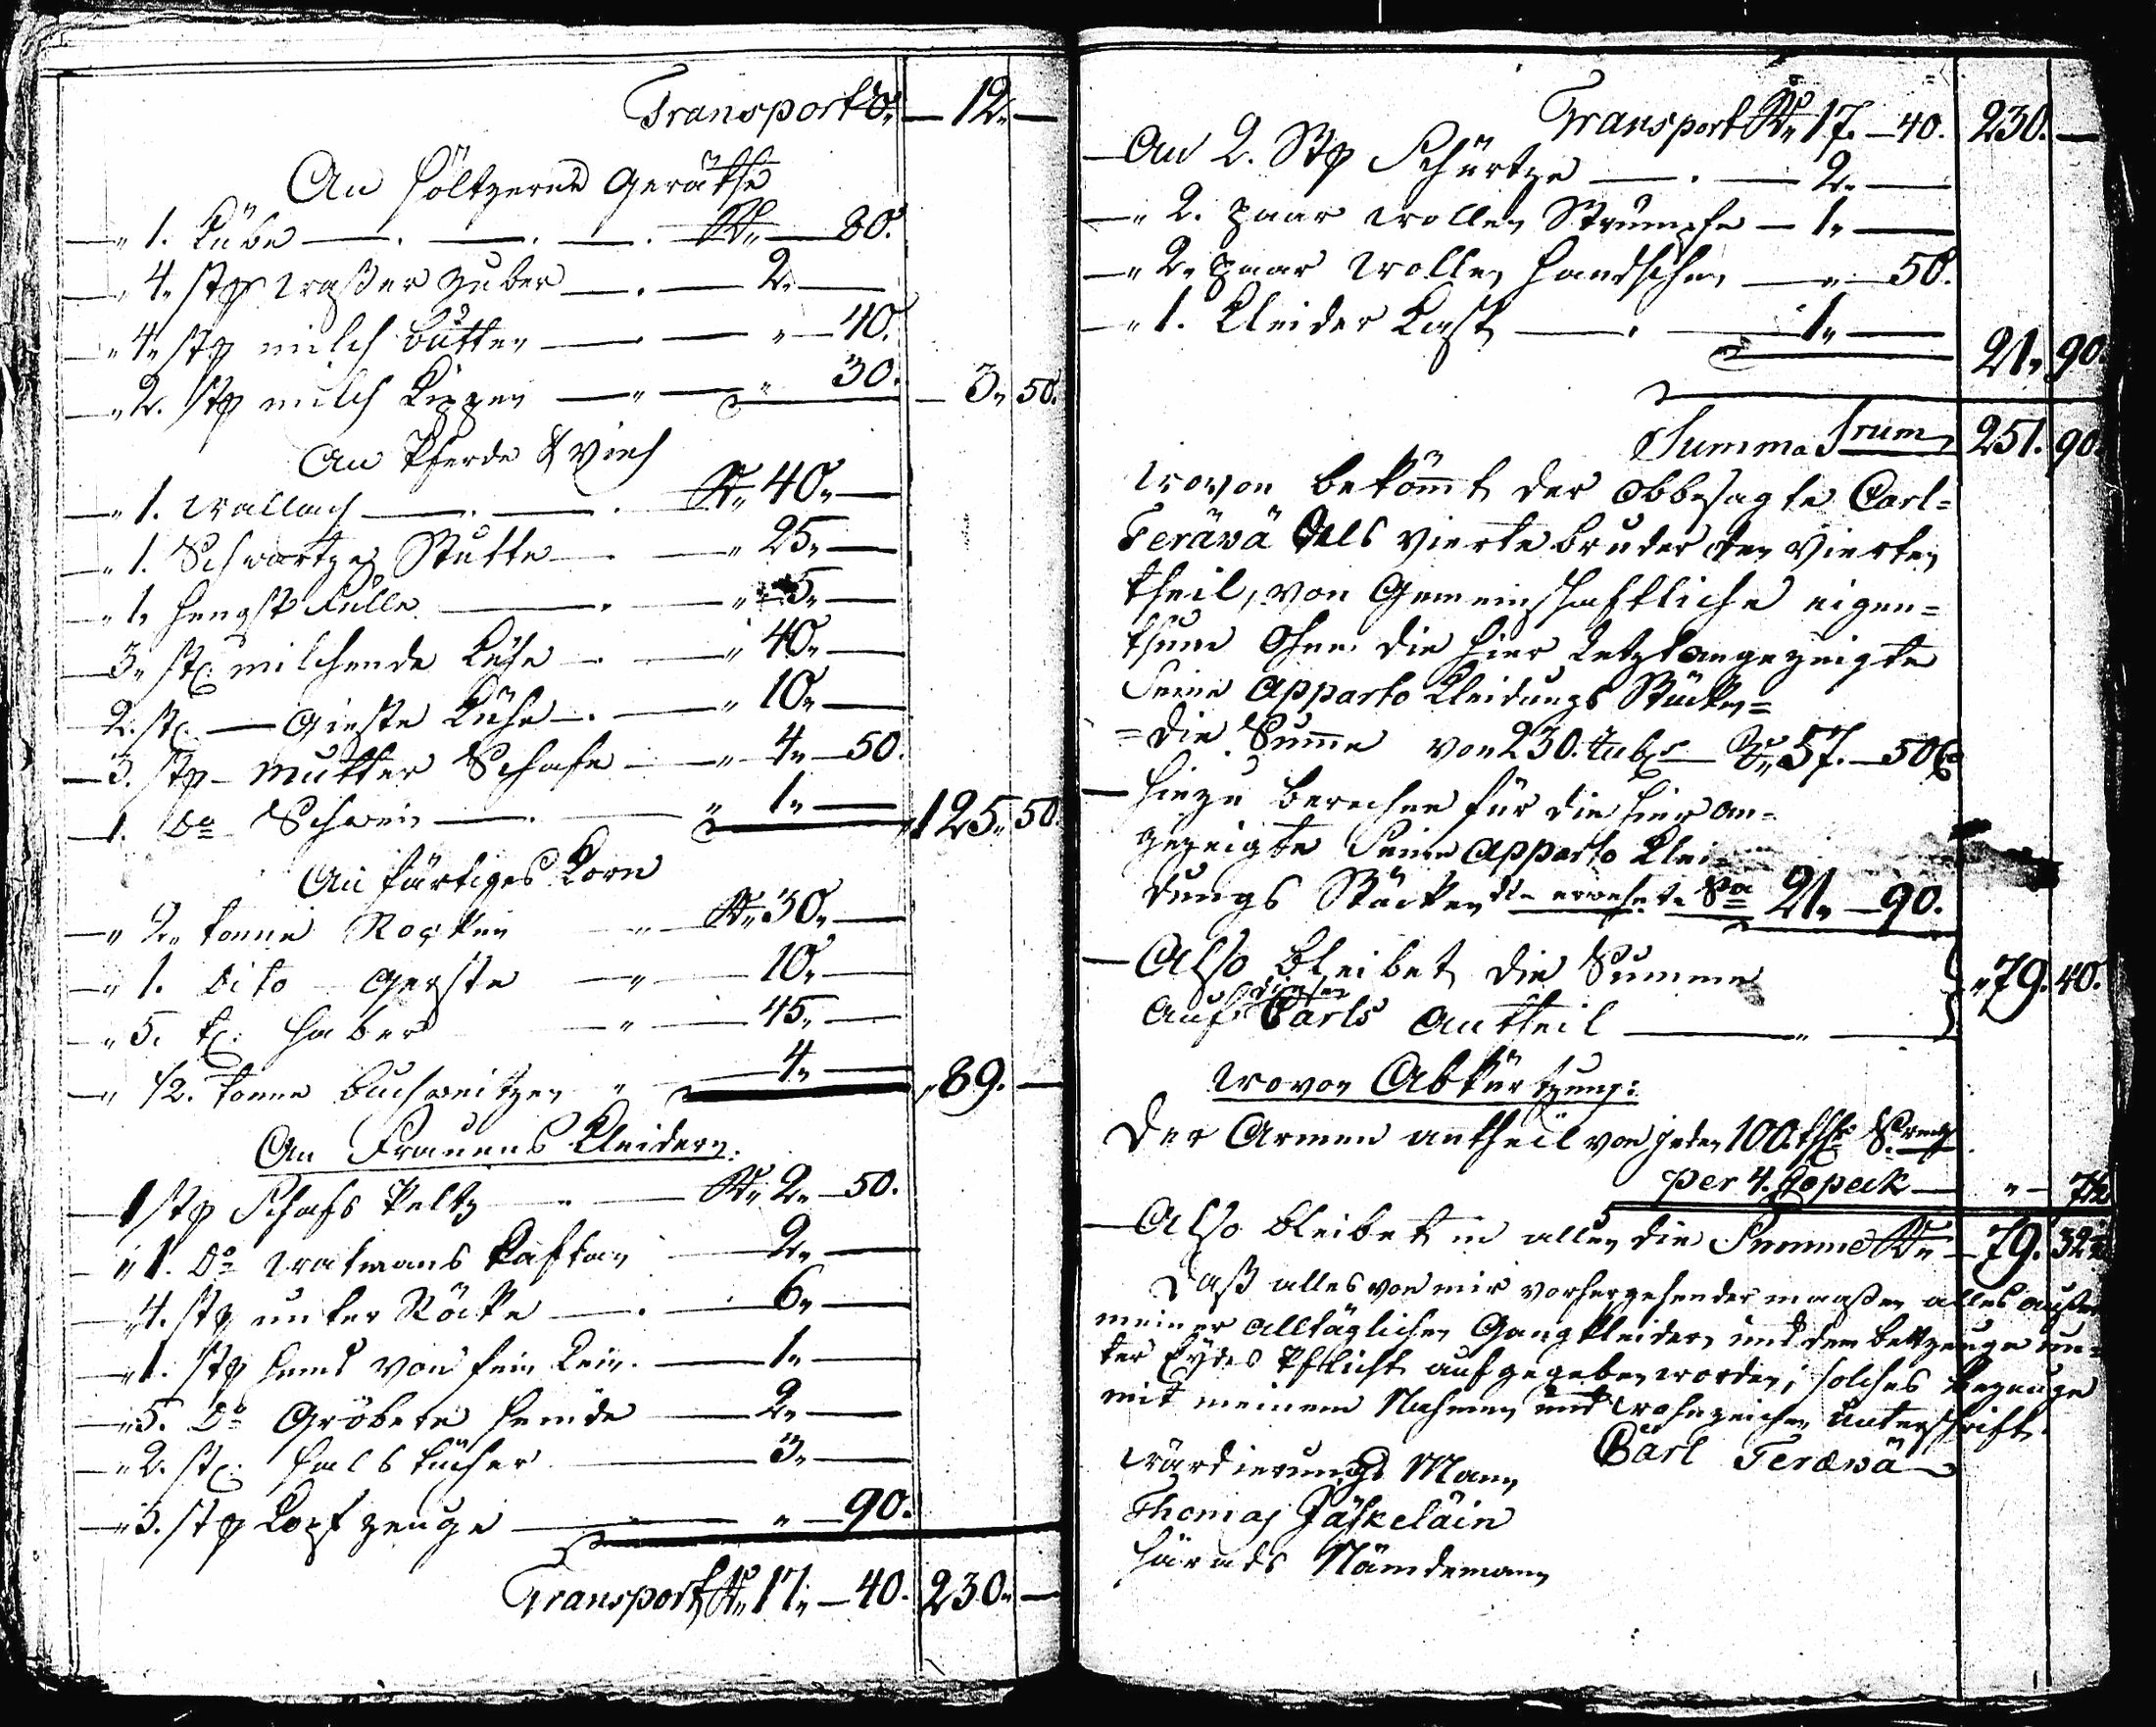 Transport Ro. — 12. —
An höltzerne Geräthe
— " 1. Kübe — . — . — . Ro. — 80.
— " 4. stp waßer Zuber — . — 2. —
— " 4. stp milch bütten — — " — 40.
— " 2. stp milch Kippen — " — " 30. — 3. 50.
An Pferde & Vieh
— " 1. Wallach — . — . Ro. 40. —
— " 1. Schwartze Stutte — . — " 25. —
— " 1. hengst Fülle — . — " 5. —
— 3. st. milchende Kühe — . — " 40. —
2. st. — Gieste Kühe — . — " 10. —
— 3. stp — Mutter Schafe — " 4. — 50.
— 1. Do Schwein — . — " 1. — " 125. 50.
An färtiges Korn
— " 2. tonne Rocken — " — Ro. 30. —
— " 1. Dito — Gerste — " — 10. —
— " 5. t. haber — " — 45. —
— " 1/2. tonne buchweitzen " — 4. — " 89. —
An Frauens Kleidern.
— 1 stp Schafs Peltz — " — Ro. 2. — 50.
— " 1. Do watmans Kaftan — 2. —
— " 4. stp unter Röcke — . — 6. —
— " 1. stp hemd von fein Lein. — 1. —
— " 5. Do Gröbere hemde — 2. —
— " 2. st. halstücher — 3. —
— " 3. stp Kopfzeuge — " — 90.
Transport Ro. 17. — 40. 230. —
Transport Ro. 17. — 40. 230. —
— An 2. Stp Schürtze — . — 2. —
— " 2. paar wollen Strümpfe — 1. —
— " 2. paar wollen handschen — " — 50.
— " 1. Kleider Kast — . — 1. —
21. 90.
Summa Srum 251. 90.
wovon bekömt der obbesagte Carl=
Teräwä als vierte bruder den vierten
theil, von Gemeinschaftliche eigen=
thum ohne die hier Letzt angezeigte
Seine apparto Kleidungs Stücken=
= die Summe von 230. Rub. Ro. 57. — 50 Co
— hiezu berechne für die hier an=
gezeigte Seine apparto Klei=
dungs Stücken die erwehnte Sa 21. — 90.
— Also bleibet die Summe
auf diesen Carls Antheil — " — " 79. 40.
wovon Abkürtzung:
Der Armen antheil von jeden 100.
per 4. Kopeck — " — 7 1/2
— Also bleibet in allen die Summe Ro. — 79. 32 1/2
Daß alles von mir vorhergehender maaßen alles außer
meiner alltäglichen Gangkleider, und dem bettzeuge un=
ter Eydes Pflicht aufgegeben worden; solches bezeuge
mit meinem Nahmen und Wohnzeichen Unterschrift.
Carl Teräwä
Wärdierungs Mann
Thomas Jäskeläin
härads Nämdemann